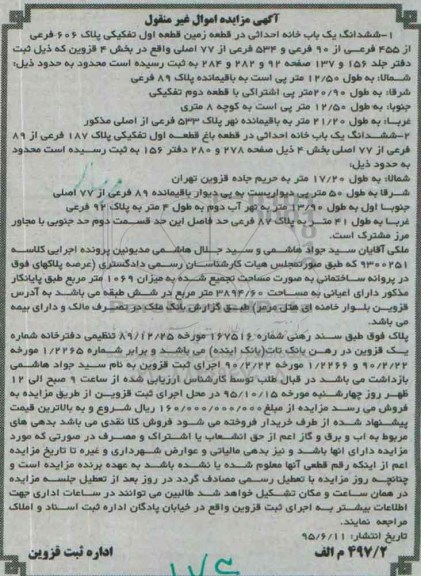 آگهی مزایده اموال غیر منقول
۱-ششدانگ یک باب خانه احداثی در قطعه زمین قطعه اول تفکیکی پلاک ۶۰۶ فرعی
از ۴۵۵ فرعی از ۹۰ فرعی و ۵۳۴ فرعی از ۷۷ اصلی واقع در بخش ۴ قزوین که ذیل ثبت
دفتر جلد ۱۵۶ و ۱۳۷ صفحه ۹۲ و ۲۸۲ و ۲۸۴ به ثبت رسیده است محدود به حدود ذیل:
شمالا: به طول ۱۲/۵۰ متر پی است به باقیمانده پلاک ۸۹ فرعی
شرقا: به طول ۲۰/۹۰متر پی اشتراکی با قطعه دوم تفکیکی
جنوبا: به طول ۱۲/۵۰ متر پی است به کوچه ۸ متری
غربا: به طول ۲۱/۲۰ متر به باقیمانده نهر پلاک ۵۳۳ فرعی از اصلی مذکور
۲-ششدانگ یک باب خانه احداثی در قطعه باغ قطعه اول تفکیکی پلاک ۱۸۷ فرعی از ۸۹
فرعی از ۷۷ اصلی بخش ۴ ذیل صفحه ۲۷۸ و ۲۸۰ دفتر ۱۵۶ به ثبت رسیده است محدود
به حدود ذیل:
شمالا: به طول ۱۷/۲۰ متر به حریم جاده قزوین تهران
شرقا به طول ۵۰ متر پی دیواریست به پی دیوار باقیمانده ۸۹ فرعی از ۷۷ اصلی
جنوبا اول به طول ۱۳/۹۰ متر به نهر آب دوم به طول ۴ متر به پلاک ۹۲ فرعی
غربا به طول ۴۱ متر به پلاک ۸۷ فرعی حد فاصل این حد قسمت دوم حد جنوبی با مجاور
مرز مشترک است.
ملکی آقایان سید جواد هاشمی و سید جلال هاشمی مدیونین پرونده اجرایی کلاسه
۹۳۰۰۲۵۱ که طبق صورتمجلس هیات کارشناسان رسمی دادگستری (عرصه پلاکهای فوق
در پروانه ساختمانی به صورت مساحت تجمیع شده به میزان ۱۰۶۹ متر مربع طبق پایانکار
مذکور دارای اعیانی به مساحت ۳۸۹۴/۶۰ متر مربع در شش طبقه می باشد به آدرس
قزوین بلوار خامنه ای هتل مرمر) طبق گزارش بانک ملک در تصرف مالک و دارای بیمه
می باشد.
پلاک فوق طبق سند رهنی شماره ۱۶۷۵۱۶ مورخه ۸۹/۱۲/۲۵ تنظیمی دفترخانه شماره
یک قزوین در رهن بانک تات(بانک آینده) می باشد و برابر شماره ۱/۲۲۶۵ مورخه
۹۰/۲/۲۲ و ۱/۲۲۶۶ مورخه ۹۰/۲/۲۲ اجرای ثبت قزوین به نام سید جواد هاشمی
بازداشت می باشد در قبال طلب توسط کارشناس ارزیابی شده از ساعت ۹ صبح الی ۱۲
ظهر روز چهارشنبه مورخه ۹۵/۱۰/۱۵ در محل اجرای ثبت قزوین از طریق مزایده به
فروش می رسد مزایده از مبلغ ۱۶۰/۰۰۰/۰۰۰/۰۰۰ ریال شروع و به بالاترین قیمت
پیشنهاد شده از طرف خریدار فروخته می شود فروش کلا نقدی می باشد بدهی های
مربوط به آب و برق و گاز اعم از حق انشعاب یا اشتراک و مصرف در صورتی که مورد
مزایده دارای آنها باشد و نیز بدهی مالیاتی و عوارض شهرداری و غیره تا تاریخ مزایده
اعم از اینکه رقم قطعی آنها معلوم شده یا نشده باشد به عهده برنده مزایده است و
چنانچه روز مزایده با تعطیل رسمی مصادف گردد در روز بعد از تعطیل جلسه مزایده
در همان ساعت و مکان تشکیل خواهد شد طالبین می توانند در ساعات اداری جهت
اطلاعات بیشتر به اجرای ثبت قزوین واقع در خیابان پادگان اداره ثبت اسناد و املاک
مراجعه نمایند.
تاریخ انتشار: ۹۵/۶/۱۱
۴۹۷/۲ م الف
اداره ثبت قزوین